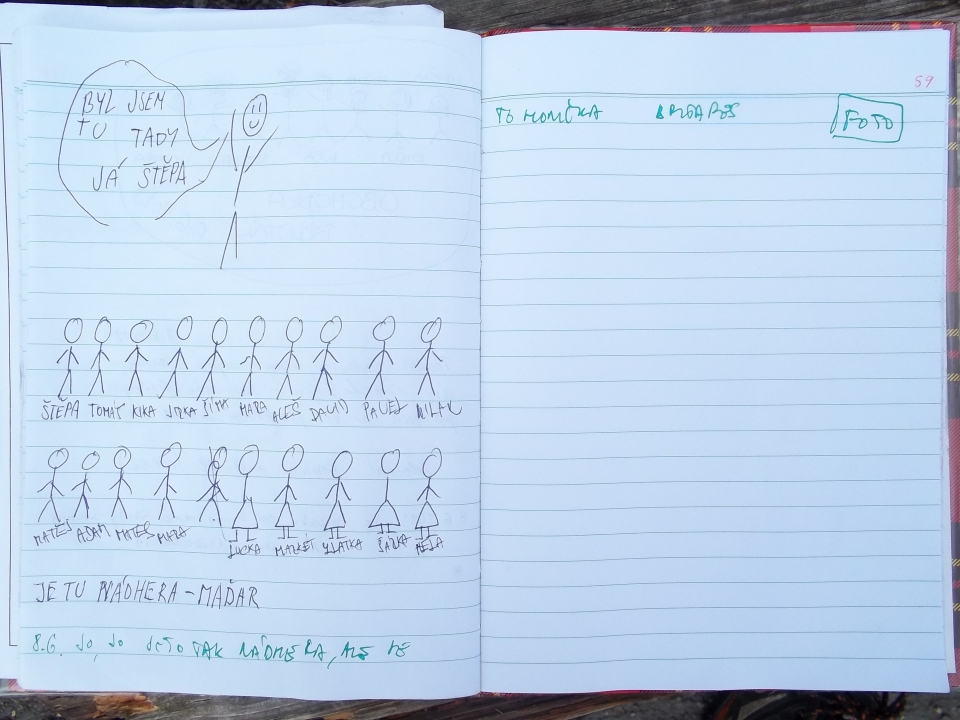 BYL JSEM
TU TADY
JÁ ŠTĚPA
ŠTĚPA TOMÁŠ KIKA JIRKA ŠÍMA MÁRA ALEŠ DAVID PAVEL MILAN
MATĚJ ADAM MATES MÁRA
LUCKA MARKÉT ZLATKA ŠÁRKA NELA
JE TU NÁDHERA - MAĎAR
8.6. JO, JO JE TO TAK NÁDHERA, ALE JE
59
TO HORIČKA
FOTO